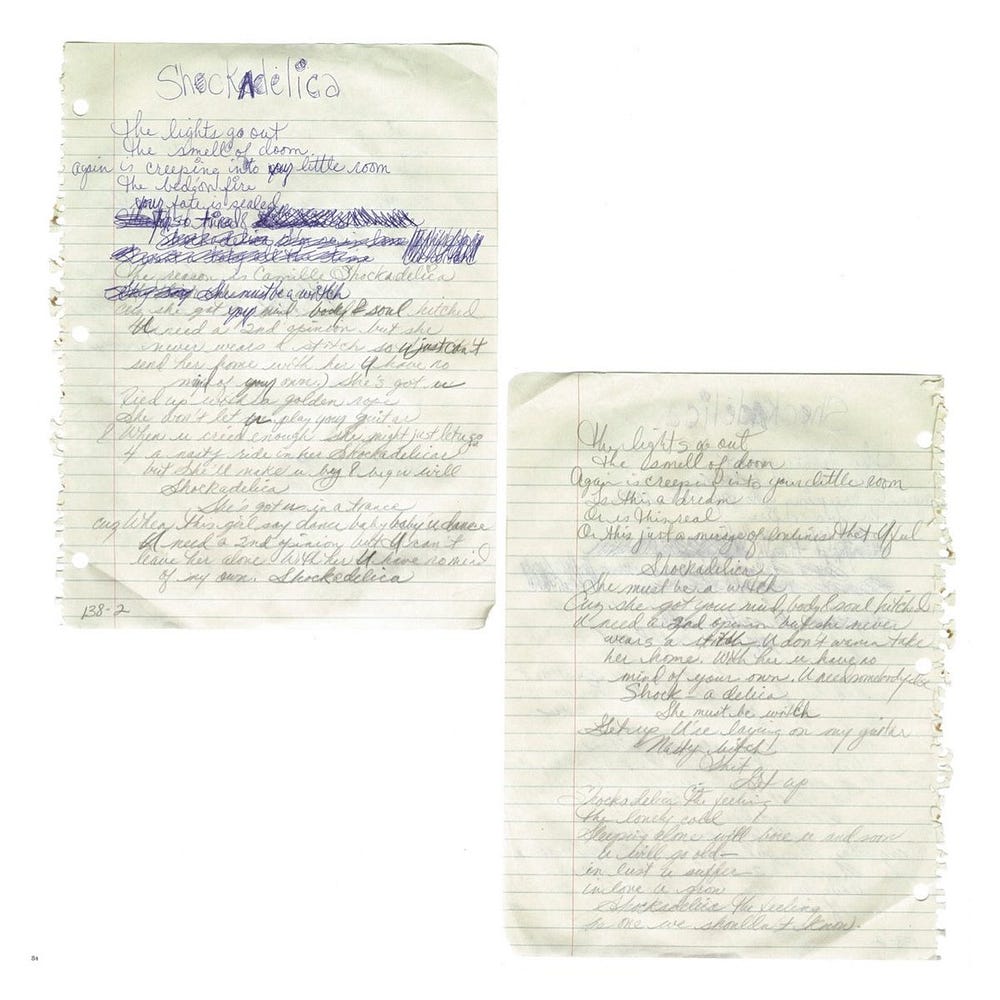 Shockadelica
The lights go out
The smell of doom
again is creeping into your little room
The bed's on fire
your fate is sealed
so tired &
The reason is Camille Shockadelica
She must be a witch
cuz she got your mind body & soul hitched
U need a 2nd opinion but she
never wears a stitch so U just can't
send her home with her U have no
mind of your own.) She's got u
tied up with a golden rope
She won't let u play your guitar
& When u cried enough she might just let u go
4 a nasty ride in her Shockadelicar
but she'll make u beg & beg u will
Shockadelica
She's got us in a trance
cuz When this girl say dance baby baby u dance
U need a 2nd opinion but U can't
leave her alone With her U have no mind
of my own. Shockadelica
138-2
The lights go out
The smell of doom
Again is creeping into your little room
Is this a dream
Or is this real
Or this just a mirage of that U ful
Shockadelica
She must be a witch
Cuz she got your mind, body & soul hitched
U need a 2nd opinion but she never
wears a stitch. U don't wanna take
her home. With her u have no
mind of your own. U need somebody
Shock-a delica
She must be witch
Get up U're laying on my guitar
Nasty bitch
Shit
Get up
Shockadelica the feeling
the lonely cold
Sleeping alone will bore u and soon
u will go old—
in lust u suffer
in love u grow
Shockadelica the feeling
no one we shouldn't know.
84